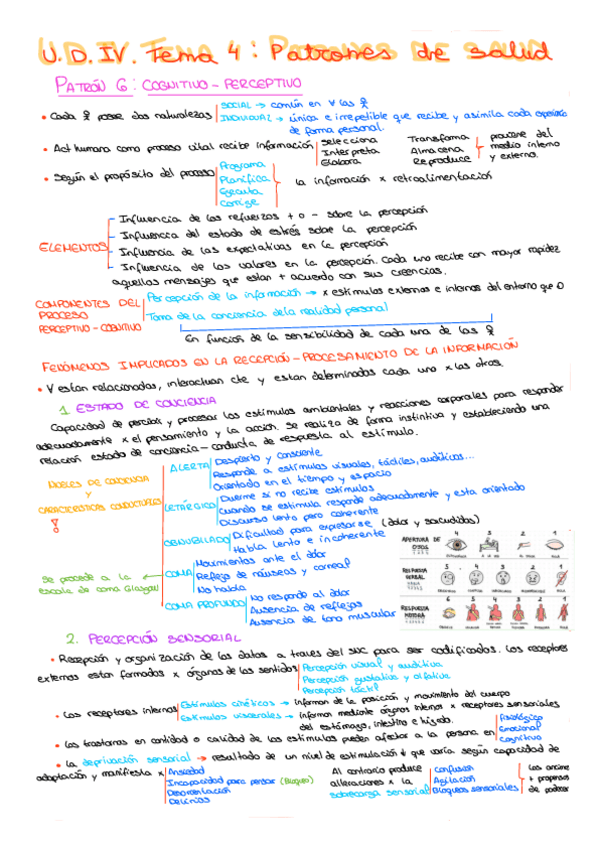 U.D. IV. Tema 4: Patrones de salud
PATRÓN 6: COGNITIVO - PERCEPTIVO
• Cada ♀ posee dos naturalezas
SOCIAL → común en ∀ las ♀
INDIVIDUAL → única e irrepetible que recibe y asimila cada
de forma personal.
• Act humana como proceso vital recibe información
Selecciona
Interpreta
Elabora
Transforma
Almacena
Reproduce
proviene del
medio interno
y externo.
• Según el propósito del proceso
Programa
Planifica
Ejecuta
Corrige
la información x retroalimentación
ELEMENTOS
- Influencia de los refuerzos + o - sobre la percepción
- Influencia del estado de estrés sobre la percepción
- Influencia de las expectativas en la percepción
- Influencia de los valores en la percepción. Cada uno recibe con mayor rapidez
aquellos mensajes que estan + acuerdo con sus creencias.
COMPONENTES DEL
PROCESO
PERCEPTIVO - COGNITIVO
Percepción de la información → x estímulos externos e internos del entorno que
Toma de la conciencia de la realidad personal
En función de la sensibilidad de cada una de las ♀
FENÓMENOS IMPLICADOS EN LA RECEPCIÓN - PROCESAMIENTO DE LA INFORMACIÓN
• ∀ estan relacionadas, interactuan cte y estan determinadas cada uno x las otras.
1. ESTADO DE CONCIENCIA
Capacidad de percibir y procesar los estímulos ambientales y reacciones corporales para responder
adecuadamente x el pensamiento y la acción. Se realiza de forma instintiva y estableciendo una
relación estado de conciencia - conducta de respuesta al estímulo.
NIVELES DE CONCIENCIA
Y
CARACTERÍSTICAS CONDUCTUALES
ALERTA
Despierto y consciente
Responde a estímulos visuales, táctiles, auditivos...
Orientado en el tiempo y espacio
LETÁRGICO
Duerme si no recibe estímulos
Cuando se estimula responde adecuadamente y esta orientado
Discurso lento pero coherente
OBNUBILADO
Dificultad para expresarse (dolor y sacudidas)
Habla lenta e incoherente
Se procede a la
escala de coma Glasgow
COMA
Movimientos ante el dolor
Reflejo de náuseas y corneal
No habla
COMA PROFUNDO
No responde al dolor
Ausencia de reflejos
Ausencia de tono muscular
APERTURA DE
OJOS
4 3 2 1
RESPUESTA
VERBAL
5 4 3 2 1
RESPUESTA
MOTORA
6 5 4 3 2 1
2. PERCEPCIÓN SENSORIAL
• Recepción y organización de los datos a traves del SNC para ser codificados. Los receptores
externos estan formados x órganos de los sentidos
Percepción visual y auditiva
Percepción gustativa y olfativa
Percepción táctil
• Los receptores internos
Estímulos cinéticos → informan de la posición y movimiento del cuerpo
Estímulos viscerales → informan mediante órganos internos x receptores sensoriales
del estómago, intestino e hígado.
• Los trastornos en cantidad o calidad de los estímulos pueden afectar a la persona en
Fisiológico
Emocional
Cognitivo
• La deprivación sensorial → resultado de un nivel de estimulación ↓ que varía según capacidad de
adaptación y manifiesta x
Ansiedad
Incapacidad para pensar (Bloqueo)
Desorientación
Delirios
Al contrario produce
alteraciones x la
sobrecarga sensorial
Confusión
Agitación
Bloqueos sensoriales
+ propensos
de padecer